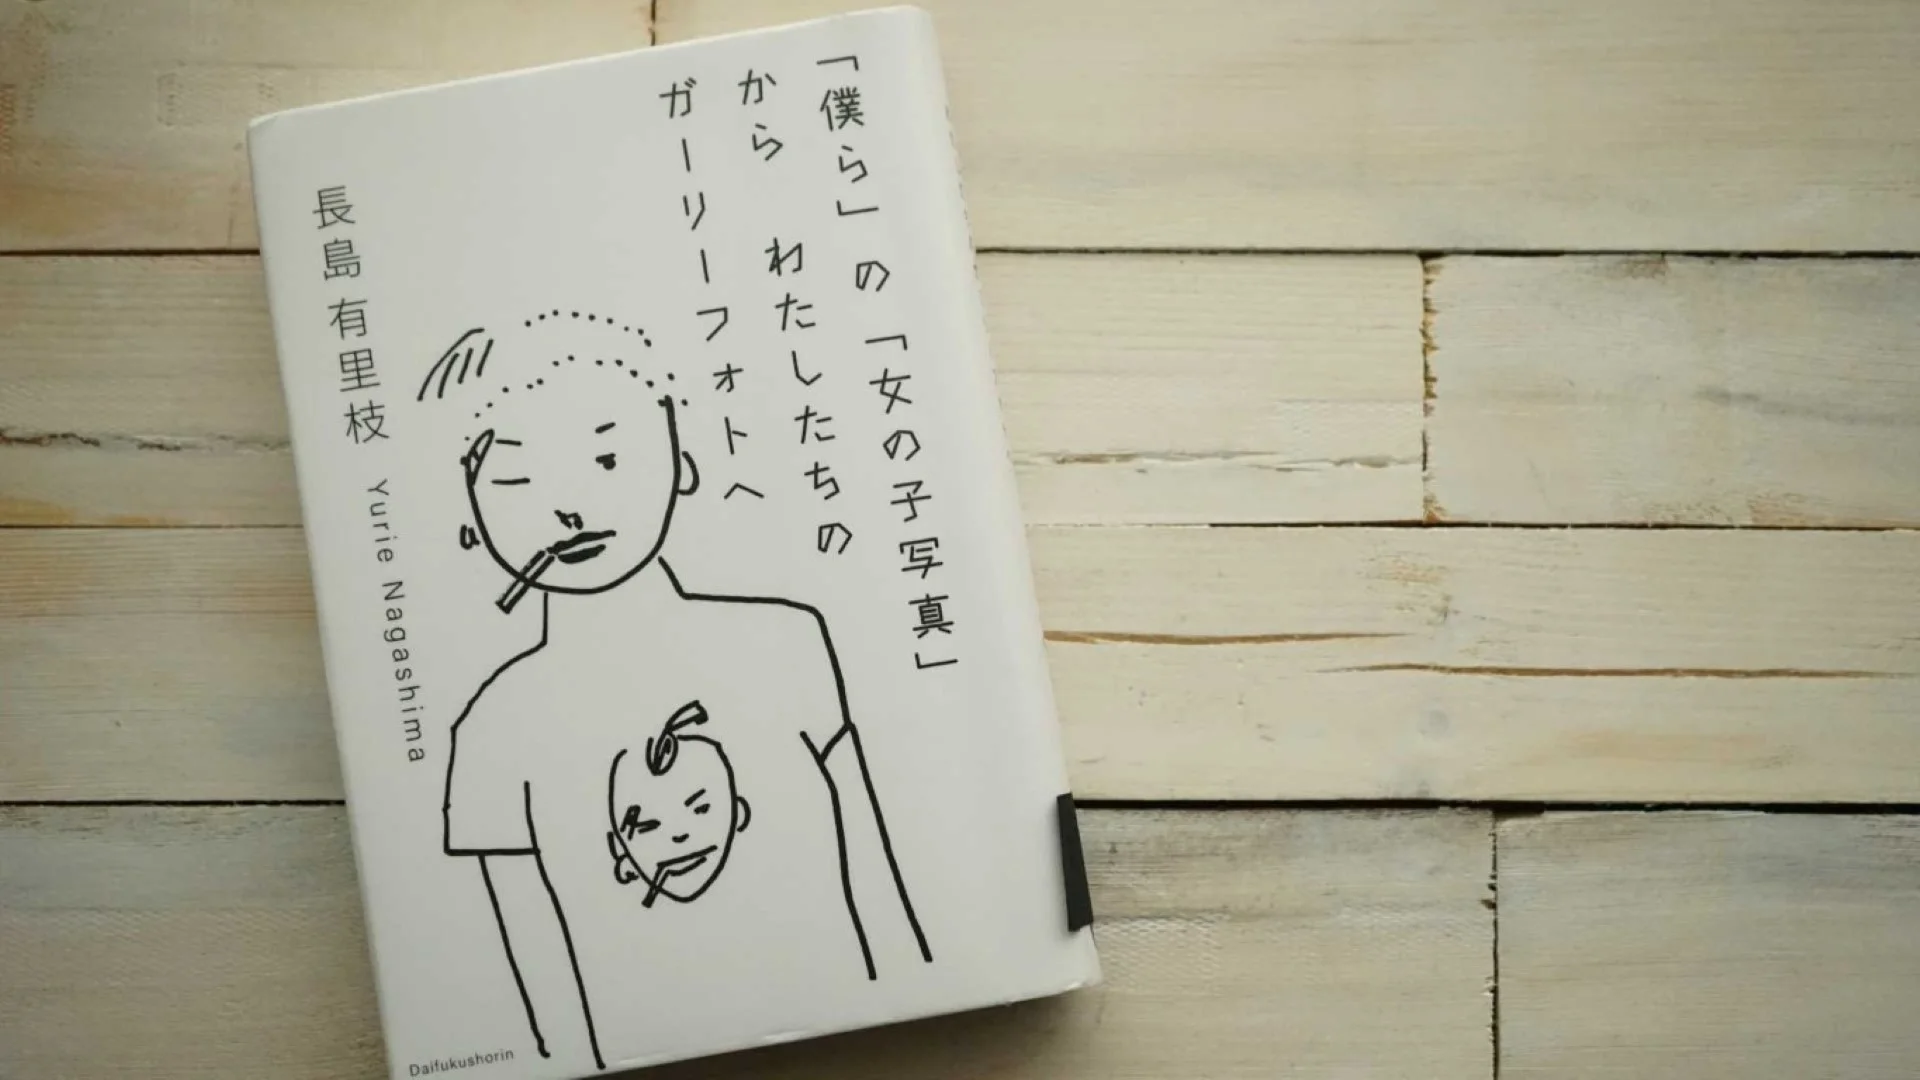 「僕ら」の「女の子写真」
から わたしたちの
ガーリーフォトへ
長島有里枝 Yurie Nagashima
Daifukushorin